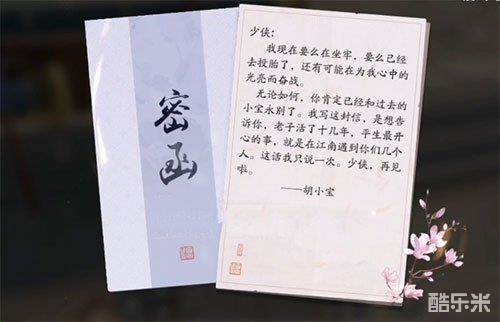 密函
少侠：
我现在要么在坐牢，要么已经
去投胎了，还有可能在为我心中的
光亮而奋战。
无论如何，你肯定已经和过去的
小宝永别了。我写这封信，是想告
诉你，老子活了十几年，平生最开
心的事，就是在江南遇到你们几个
人。这话我只说一次。少侠，再见
啦。
——胡小宝
酷乐米